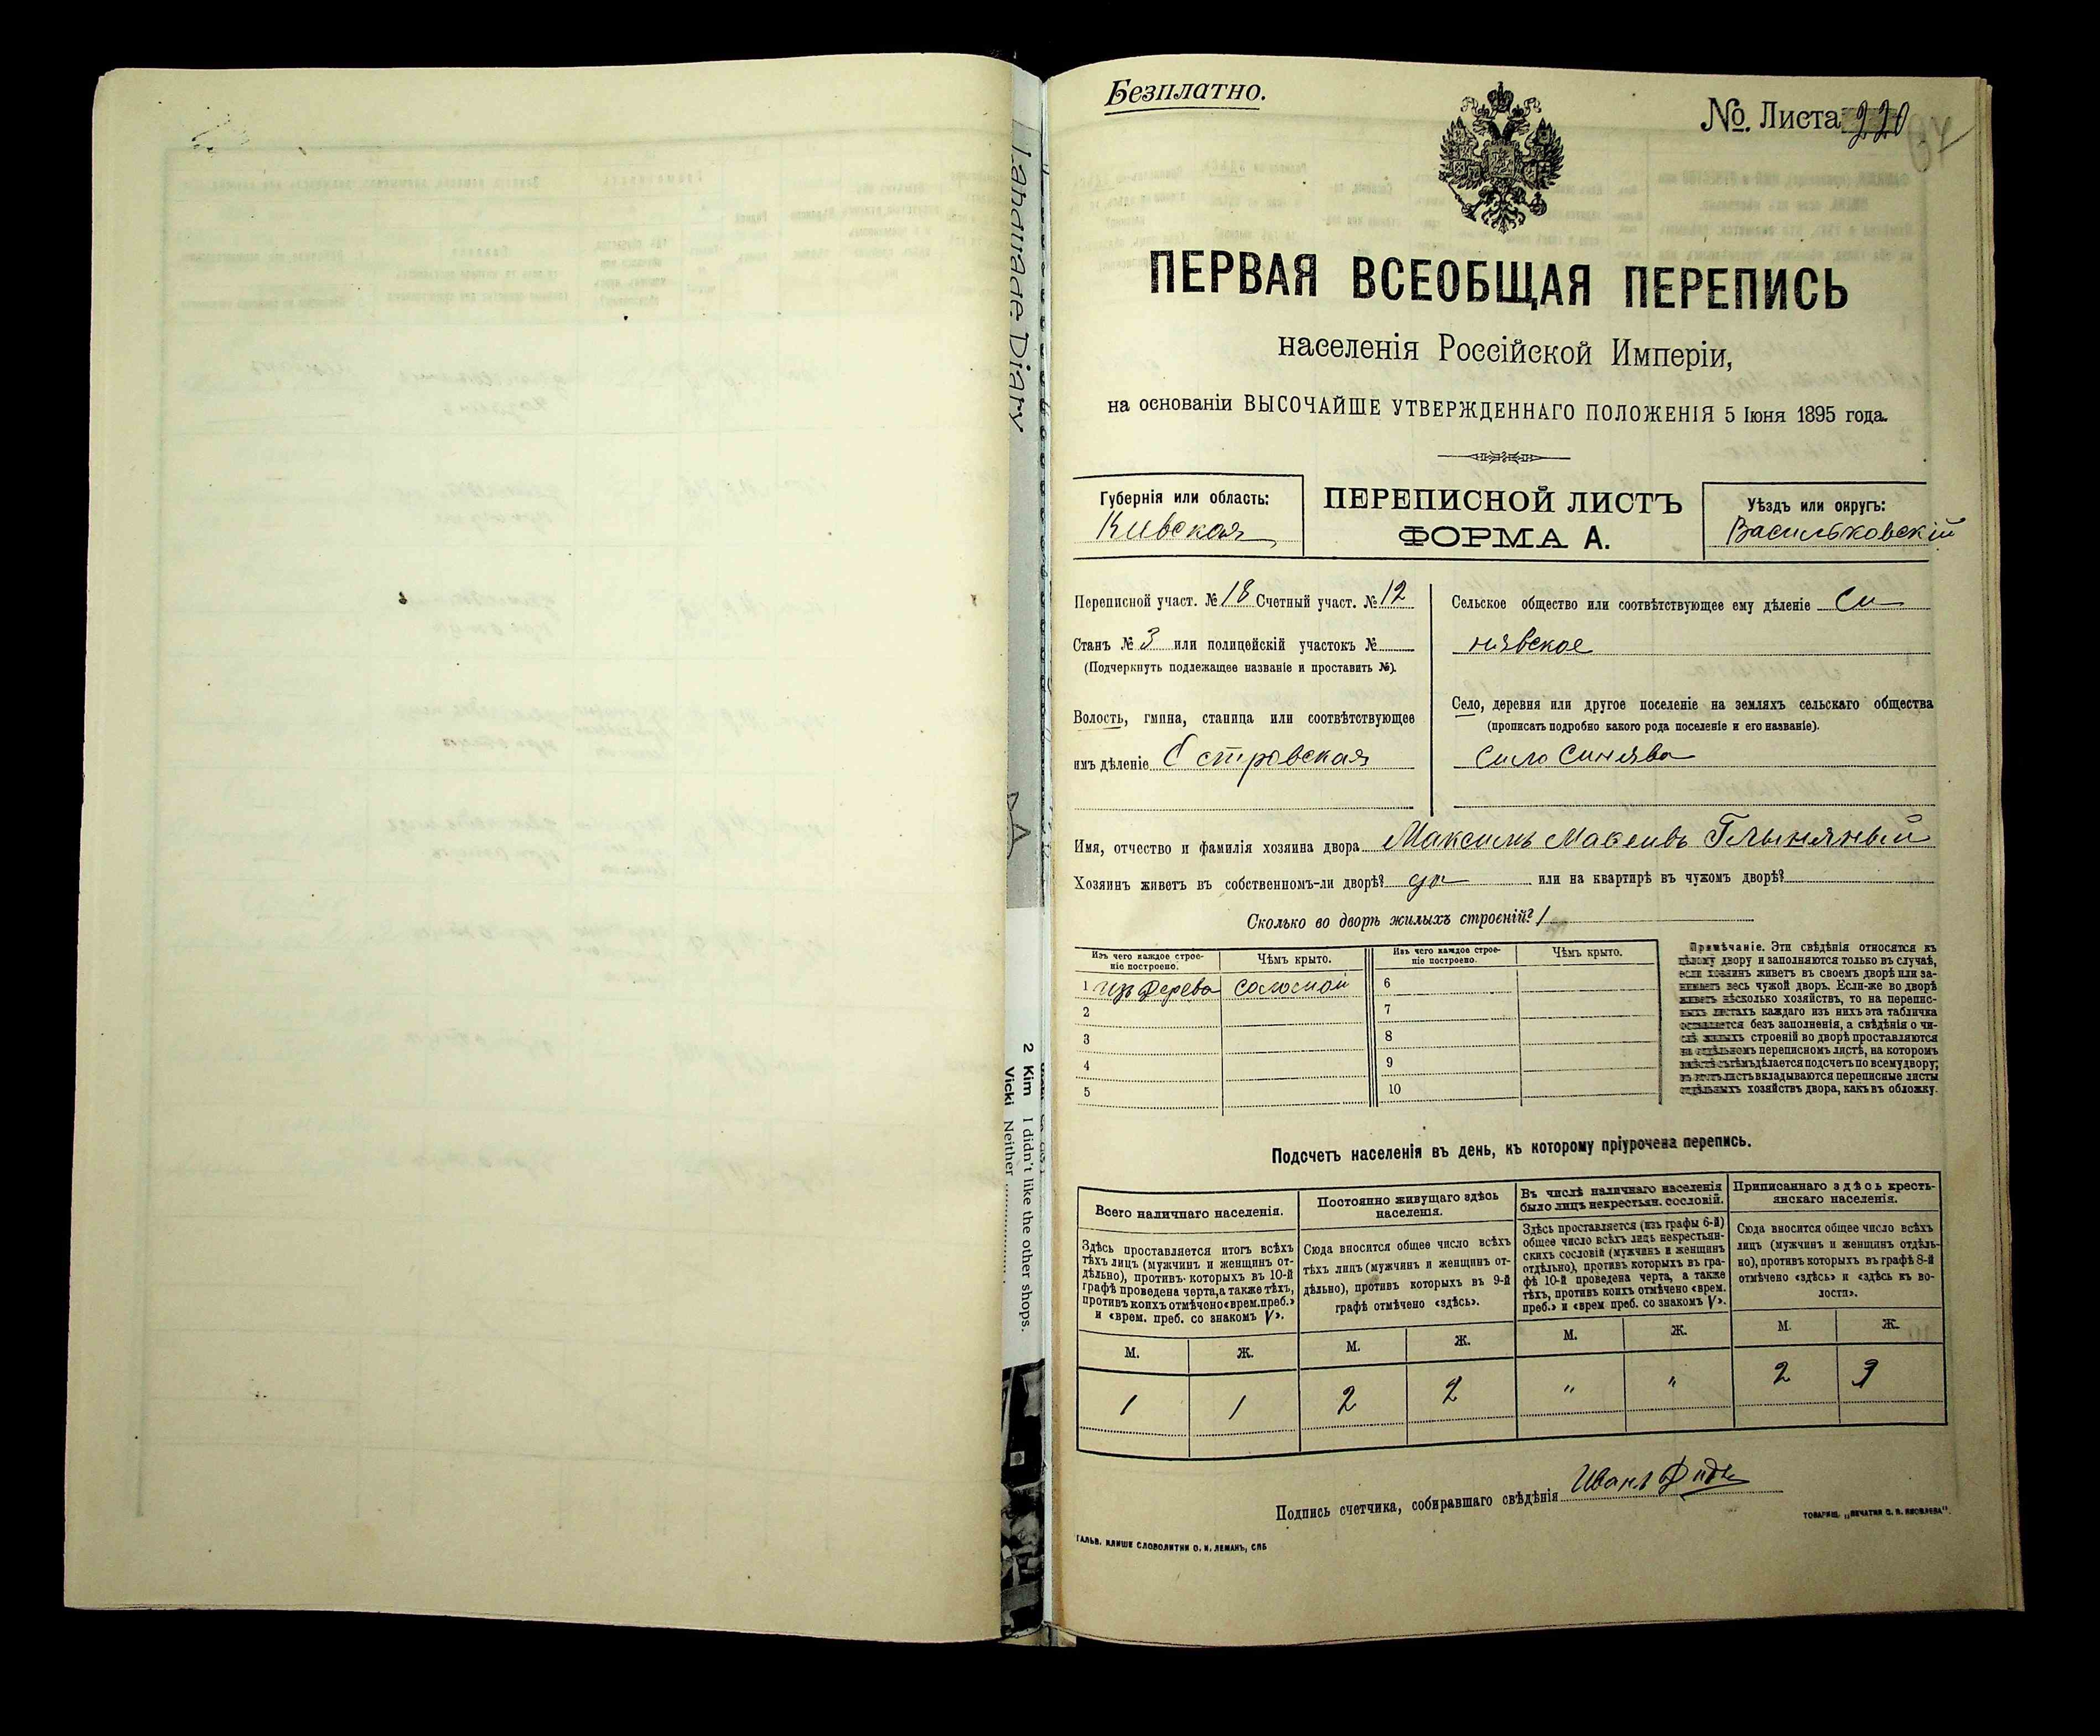 Безплатно.
№. Листа 220
ПЕРВАЯ ВСЕОБЩАЯ ПЕРЕПИСЬ
населенія Россійской Имперіи,
на основаніи ВЫСОЧАЙШЕ УТВЕРЖДЕННАГО ПОЛОЖЕНІЯ 5 Іюня 1895 года.
Губернія или область:
Кивская
ПЕРЕПИСНОЙ ЛИСТЪ
ФОРМА А.
Уѣздъ или округъ:
Васильковскій
Переписной участ. № 18 Счетный участ. № 12
Станъ № 3 или полицейскій участокъ №
(Подчеркнуть подлежащее названіе и проставить №).
Волость, гмина, станица или соотвѣтствующее
имъ дѣленіе Островская
Сельское общество или соотвѣтствующее ему дѣленіе Си
нявское
Село, деревня или другое поселеніе на земляхъ сельскаго общества
(прописать подробно какого рода поселеніе и его названіе).
Село Синява
Имя, отчество и фамилія хозяина двора Максимъ Глыняный
Хозяинъ живетъ въ собственномъ-ли дворѣ? да или на квартирѣ въ чужомъ дворѣ?
Сколько во дворѣ жилыхъ строеній? 1
Изъ чего каждое строе-
ніе построено.
Чѣмъ крыто.
Изъ чего каждое строе-
ніе построено.
Чѣмъ крыто.
1 изъ дерева соломой 6
2 7
3 8
4 9
5 10
Примѣчаніе. Эти свѣдѣнія относятся къ
цѣлому двору и заполняются только въ случаѣ,
если хозяинъ живетъ въ своемъ дворѣ или за-
нимаетъ весь чужой дворъ. Если-же во дворѣ
живетъ нѣсколько хозяйствъ, то на перепис-
ныхъ листахъ каждаго изъ нихъ эта табличка
оставляется безъ заполненія, а свѣдѣнія о чи-
слѣ жилыхъ строеній во дворѣ проставляются
на отдѣльномъ переписномъ листѣ, на которомъ
дѣлается подсчетъ по всему двору;
вкладываются переписные листы
отдѣльныхъ хозяйствъ двора, какъ въ обложку.
Подсчетъ населенія въ день, къ которому пріурочена перепись.
Всего наличнаго населенія.
Здѣсь проставляется итогъ всѣхъ
тѣхъ лицъ (мужчинъ и женщинъ от-
дѣльно), противъ которыхъ въ 10-й
графѣ проведена черта, а также тѣхъ,
противъ коихъ отмѣчено «врем. преб.»
и «врем. преб. со знакомъ V».
Постоянно живущаго здѣсь
населенія.
Сюда вносится общее число всѣхъ
тѣхъ лицъ (мужчинъ и женщинъ от-
дѣльно), противъ которыхъ въ 9-й
графѣ отмѣчено «здѣсь».
Въ числѣ наличнаго населенія
было лицъ некрестьян. сословій.
Здѣсь проставляется (изъ графы 6-й)
общее число всѣхъ лицъ некрестьян-
скихъ сословій (мужчинъ и женщинъ
отдѣльно), противъ которыхъ въ гра-
фѣ 10-й проведена черта, а также
тѣхъ, противъ коихъ отмѣчено «врем.
преб.» и «врем преб. со знакомъ V».
Приписаннаго здѣсь кресть-
янскаго населенія.
Сюда вносится общее число всѣхъ
лицъ (мужчинъ и женщинъ отдѣль-
но), противъ которыхъ въ графѣ 8-й
отмѣчено «здѣсь» и «здѣсь къ во-
лости».
М. Ж. М. Ж. М. Ж. М. Ж.
1 1 2 2 " " 2 3
Подпись счетчика, собиравшаго свѣдѣнія Иванъ
ГАЛЬВ. КЛИШЕ СЛОВОЛИТНИ О. И. ЛЕМАНЪ, СПБ
ТОВАРИЩ. „ПЕЧАТНЯ С. П. ЯКОВЛЕВА".
Language Diary
2 Kim I didn't like the other shops.
Vicki Neither